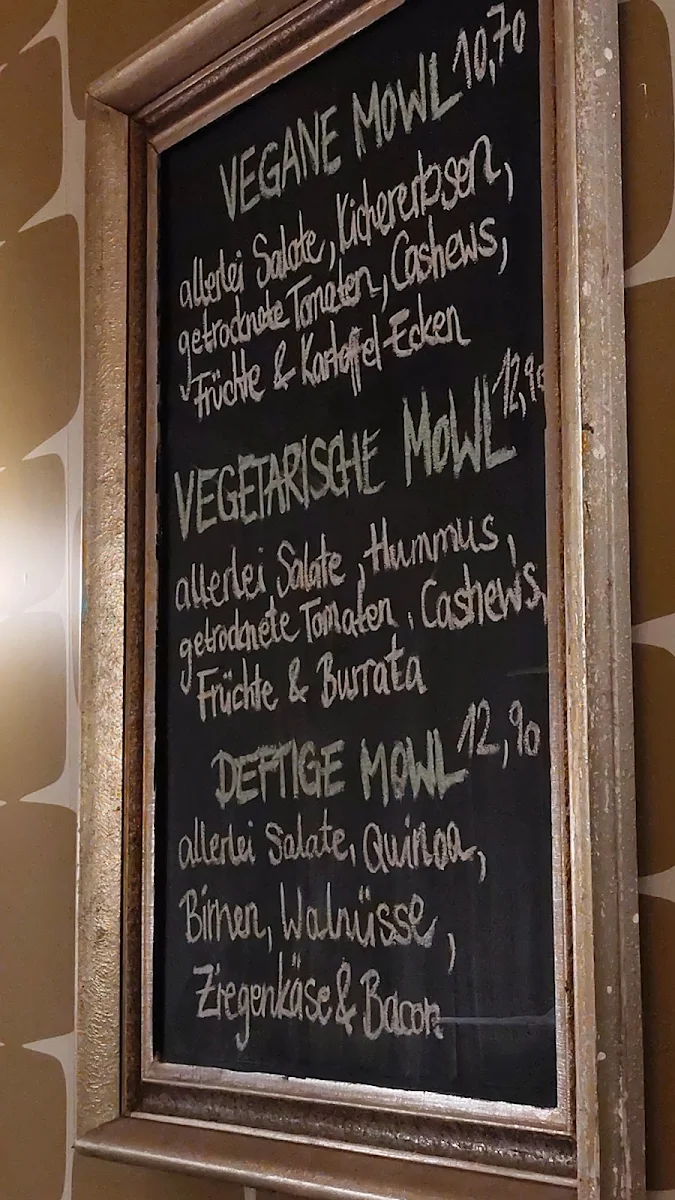 VEGANE MOWL 10,70
allerlei Salate, Kichererbsen,
getrocknete Tomaten, Cashews,
Früchte & Kartoffel-Ecken
VEGETARISCHE MOWL 12,90
allerlei Salate, Hummus,
getrocknete Tomaten, Cashews,
Früchte & Burrata
DEFTIGE MOWL 12,90
allerlei Salate, Quinoa,
Birnen, Walnüsse,
Ziegenkäse & Bacon